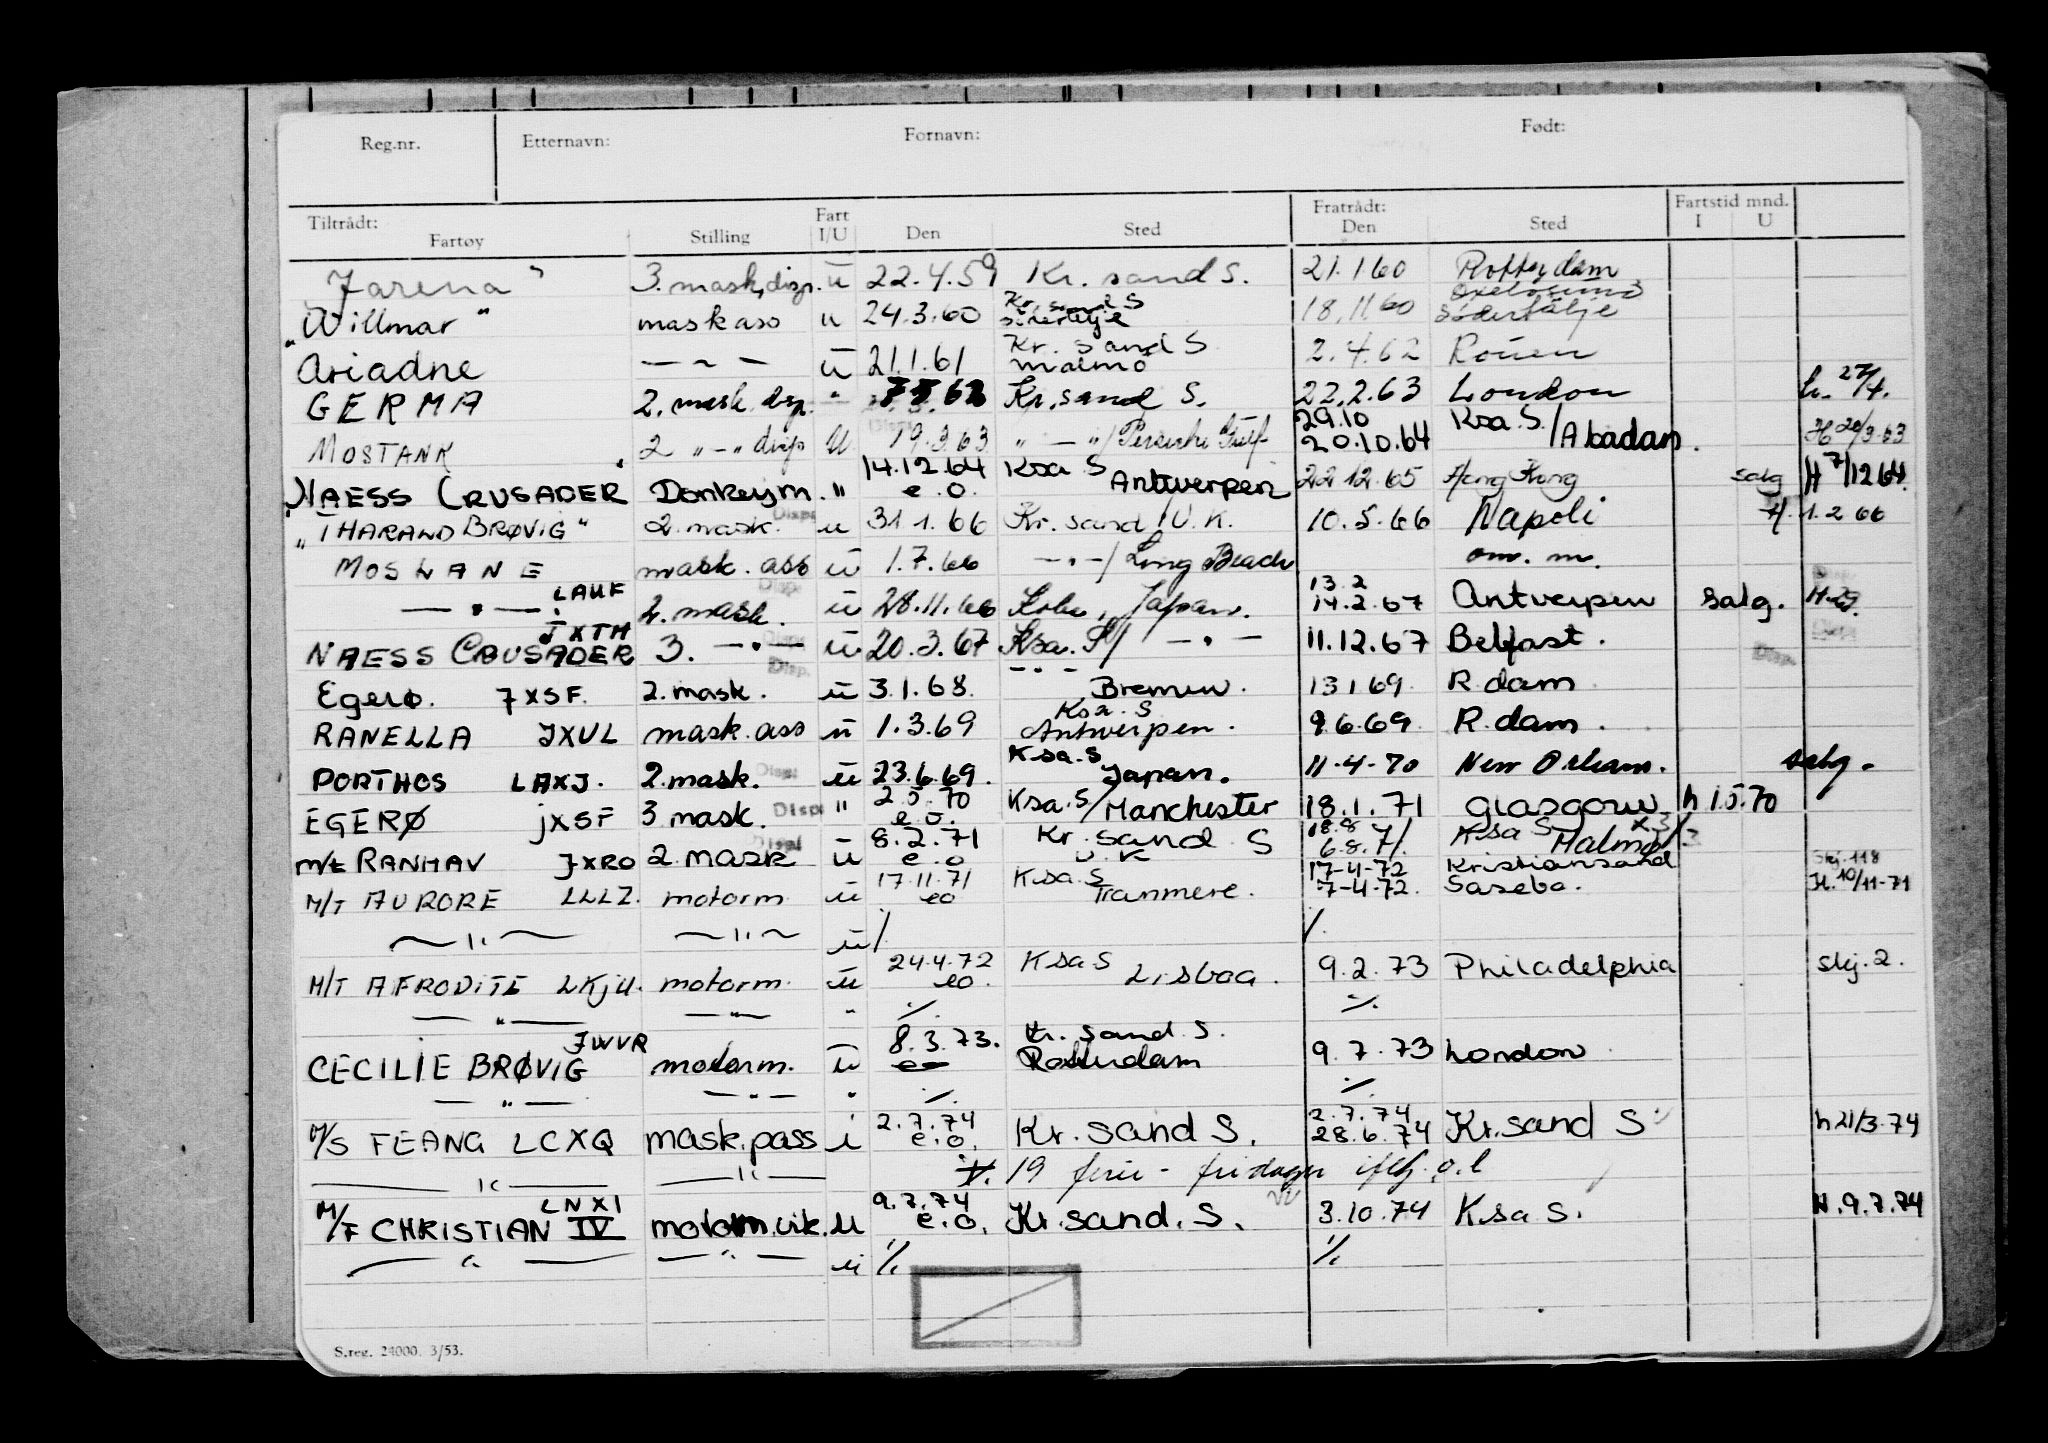 Reg.nr. Etternavn: Fornavn: Født:
Tiltrådt: Fratrådt: Fartstid mnd.
Fartøy Stilling Fart I/U Den Sted Den Sted I U
"Jarena" 3. mask, disp. u 22.4.59 Kr. sand S. 21.1.60 Rotterdam
"Willmar" mask ass u 24.3.60 Kr. sand S Södertelje 18.11.60 Oxeløsund Södertälje
Ariadne — " — u 21.1.61 Kr. sand S Malmö 2.4.62 Rouen
GERMA 2. mask. disp. " 62 Kr. sand S. 22.2.63 London h. 27/4.
MOSTANK 2 " — " disp U 19.3.63 " — " / Persiske Gulf 29.10 20.10.64 Ksa. S. / Abadan. H 20/3.63
NAESS CRUSADER Donkeym. " 14.12.64 e.o. Ksa S Antwerpen 22.12.65 Hong Kong salg H 7/12 64.
"THARALD BRØVIG" 2. mask. Disp. u 31.1.66 Kr. sand / U.K. 10.5.66 Napoli H. 1.2 66
MOSLANE mask. ass u 1.7.66 — " — / Long Beach om. m.
— " — LAUF 2. mask. Disp. u 28.11.66 Kobe, Japan. 13.2 14.2.67 Antwerpen salg.
NAESS CRUSADER JXTH 3. — " — Disp. u 20.3.67 Ksa. S / — " — 11.12.67 Belfast. Disp.
Egerø. JXSF. 2. mask. Disp. u 3.1.68. — " — Bremen. 13.1.69. R.dam
RANELLA JXUL mask. ass u 1.3.69 Ksa. S Antwerpen. 9.6.69. R.dam.
PORTHOS LAXJ. 2. mask. Disp. u 23.6.69. Ksa. S Japan. 11-4-70 New Orleans. salg.
EGERØ JXSF 3 mask. Disp. " 2.5.70 e.o. Ksa. S / Manchester 18.1.71 Glasgow h 1.5.70
m/t RANHAV JXRO 2. mask Disp. u 8.2.71 e.o Kr. sand S U.K 18.8 6.8.71. Ksa S Malmø
M/T AURORE LLLZ. motorm u 17.11.71 eo Ksa. S Tranmere. 17-4-72 7-4-72. Kristiansand Sasebo. Skj. 118 H. 10/11-71
— " — — " — u /. /.
M/T AFRODITE LKJU. motorm. u 24.4.72 eo. Ksa S Lisboa. 9.2.73 Philadelphia skj. 2.
— " — — " — " /. /.
CECILIE BRØVIG JWVR motorm. u 8.3.73. eo Kr. sand. S. Rotterdam 9.7.73 London
— " — — " — " /. /.
M/S FEANG LCXQ mask. pass i 2.7.74 e.o. Kr. sand S. 2.7.74 28.6.74 Kr. sand S h 21/3.74
— " — — " — 19 ferie - fridager iflg. o.l
M/F CHRISTIAN IV LNXI motorm. vik. U 9.7.74 e.o. Kr. sand. S. 3.10.74 Ksa S. H. 9.7.74
— " — — " — u /. /.
S.reg. 24000. 3/53.